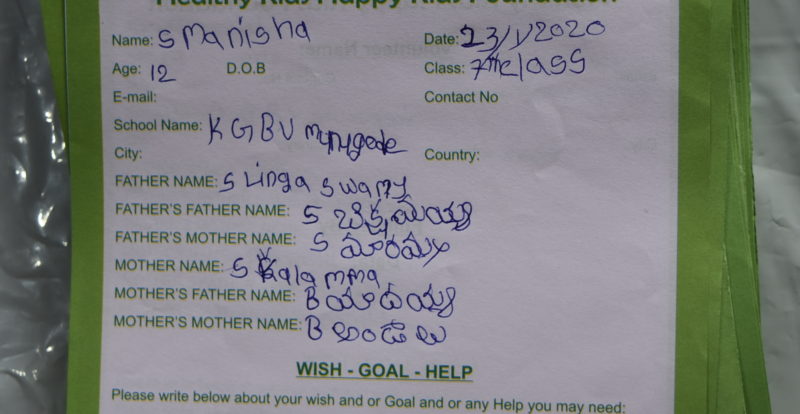 Healthy Kids Happy Kids Foundation
Name: S Manisha Date: 23/1/2020
Age: 12 D.O.B Class: 7th class
E-mail: Contact No
School Name: K G B V Munugode
City: Country:
FATHER NAME: S Linga Swamy
FATHER'S FATHER NAME: S బిక్షమయ్య
FATHER'S MOTHER NAME: S మారమ్మ
MOTHER NAME: S Kalamma
MOTHER'S FATHER NAME: B యాదయ్య
MOTHER'S MOTHER NAME: B అండాలు
WISH - GOAL - HELP
Please write below about your wish and or Goal and or any Help you may need: